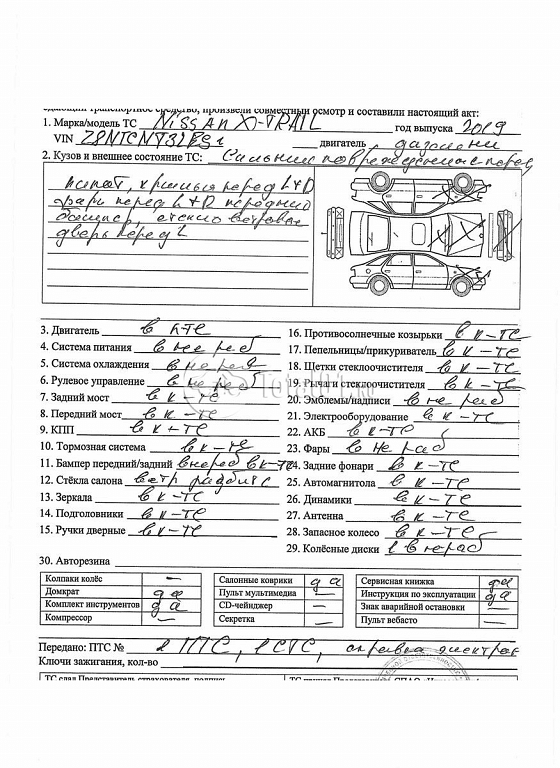 едающий транспортное средство, произвели совместный осмотр и составили настоящий акт:
1. Марка/модель ТС Nissan X-TRAIL год выпуска 2019
VIN двигатель
2. Кузов и внешнее состояние ТС: Сильные повреждения перед
капот, крылья перед L+D
фары перед L+D передний
бампер, стекло ветровое
дверь перед L
3. Двигатель в к-те
4. Система питания в не раб
5. Система охлаждения в не раб
6. Рулевое управление в не раб
7. Задний мост в к-те
8. Передний мост в к-те
9. КПП в к-те
10. Тормозная система в к-те
11. Бампер передний/задний в не раб в к-те
12. Стёкла салона ветр разбито
13. Зеркала в к-те
14. Подголовники в к-те
15. Ручки дверные в к-те
16. Противосолнечные козырьки в к-те
17. Пепельницы/прикуриватель в к-те
18. Щетки стеклоочистителя в к-те
19. Рычаги стеклоочистителя в к-те
20. Эмблемы/надписи в не раб
21. Электрооборудование в к-те
22. АКБ в к-те
23. Фары в не раб
24. Задние фонари в к-те
25. Автомагнитола в к-те
26. Динамики в к-те
27. Антенна в к-те
28. Запасное колесо в к-те
29. Колёсные диски 1 в не раб
30. Авторезина
Колпаки колёс —
Домкрат да
Комплект инструментов да
Компрессор —
Салонные коврики да
Пульт мультимедиа —
CD-чейнджер —
Секретка —
Сервисная книжка да
Инструкция по эксплуатации да
Знак аварийной остановки —
Пульт вебасто —
Передано: ПТС № 1 ПТС, 1 СТС,
Ключи зажигания, кол-во